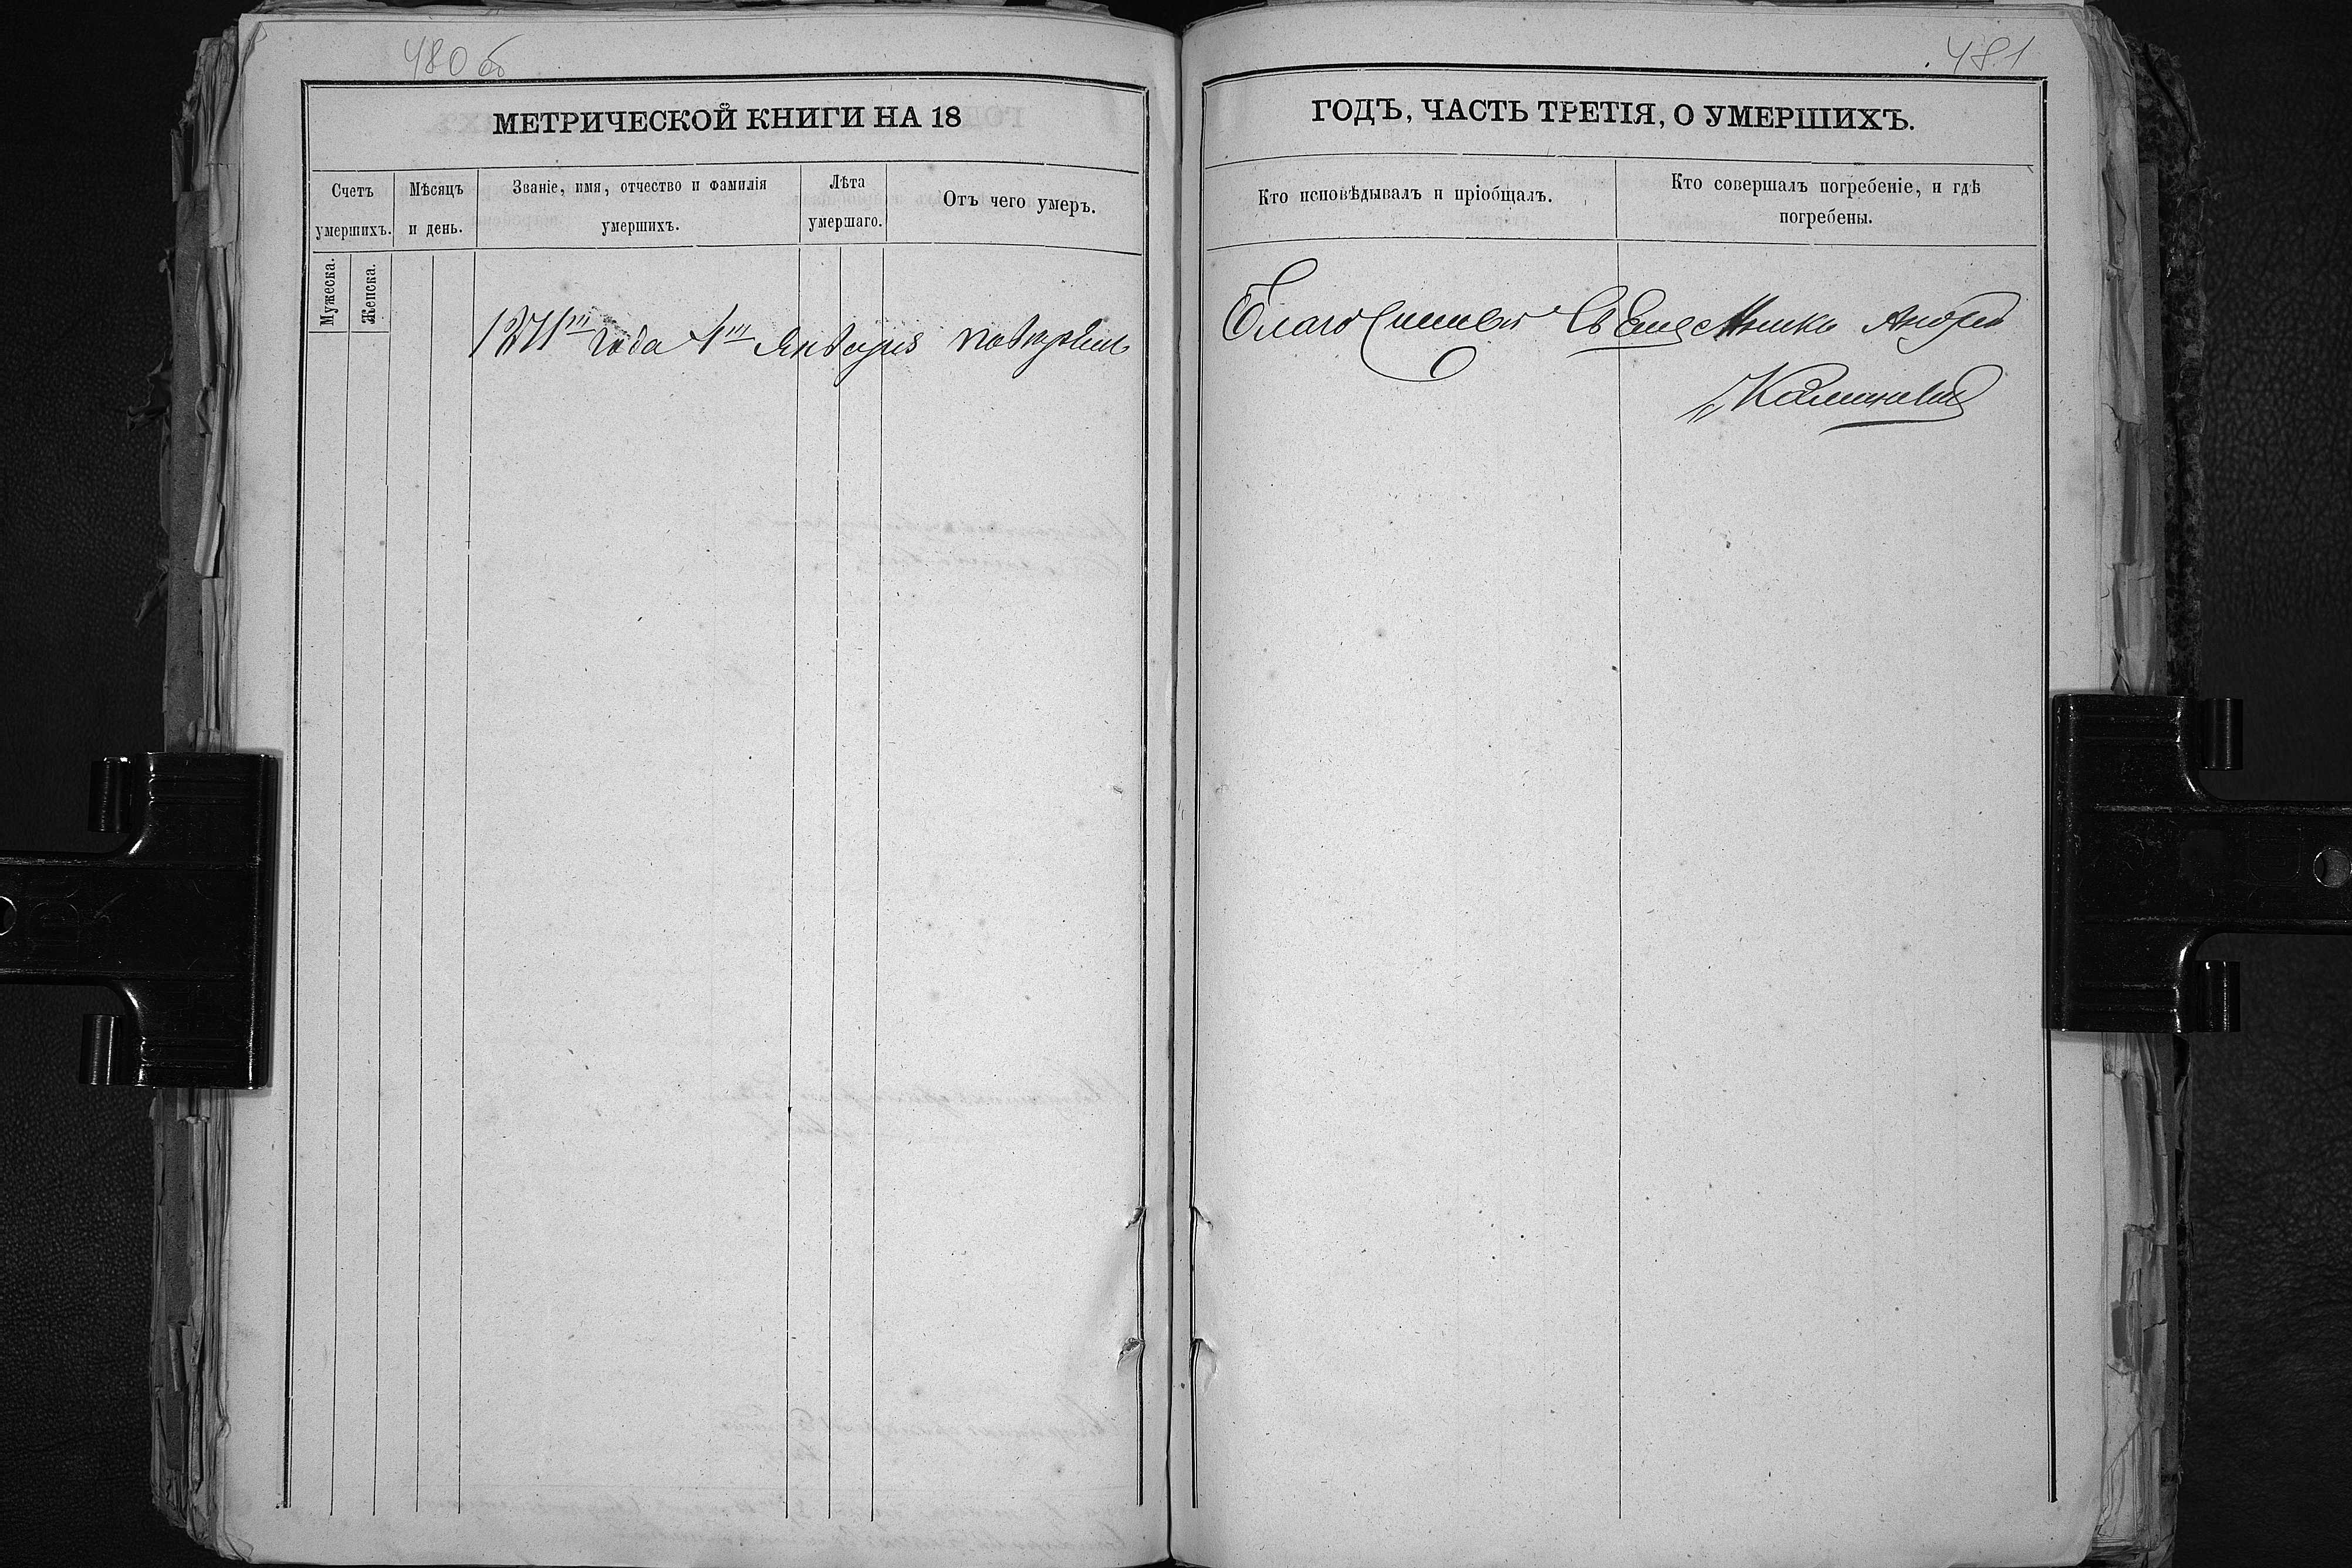 480 об
МЕТРИЧЕСКОЙ КНИГИ НА 18
Счетъ умершихъ.
Мужеска.
Женска.
Мѣсяцъ и день.
Званіе, имя, отчество и фамилія умершихъ.
Лѣта умершаго.
Отъ чего умеръ.
1871го года 4го Января повѣрялъ
481
ГОДЪ, ЧАСТЬ ТРЕТІЯ, О УМЕРШИХЪ.
Кто исповѣдывалъ и пріобщалъ.
Кто совершалъ погребеніе, и гдѣ погребены.
Благочинный Священникъ Андрей